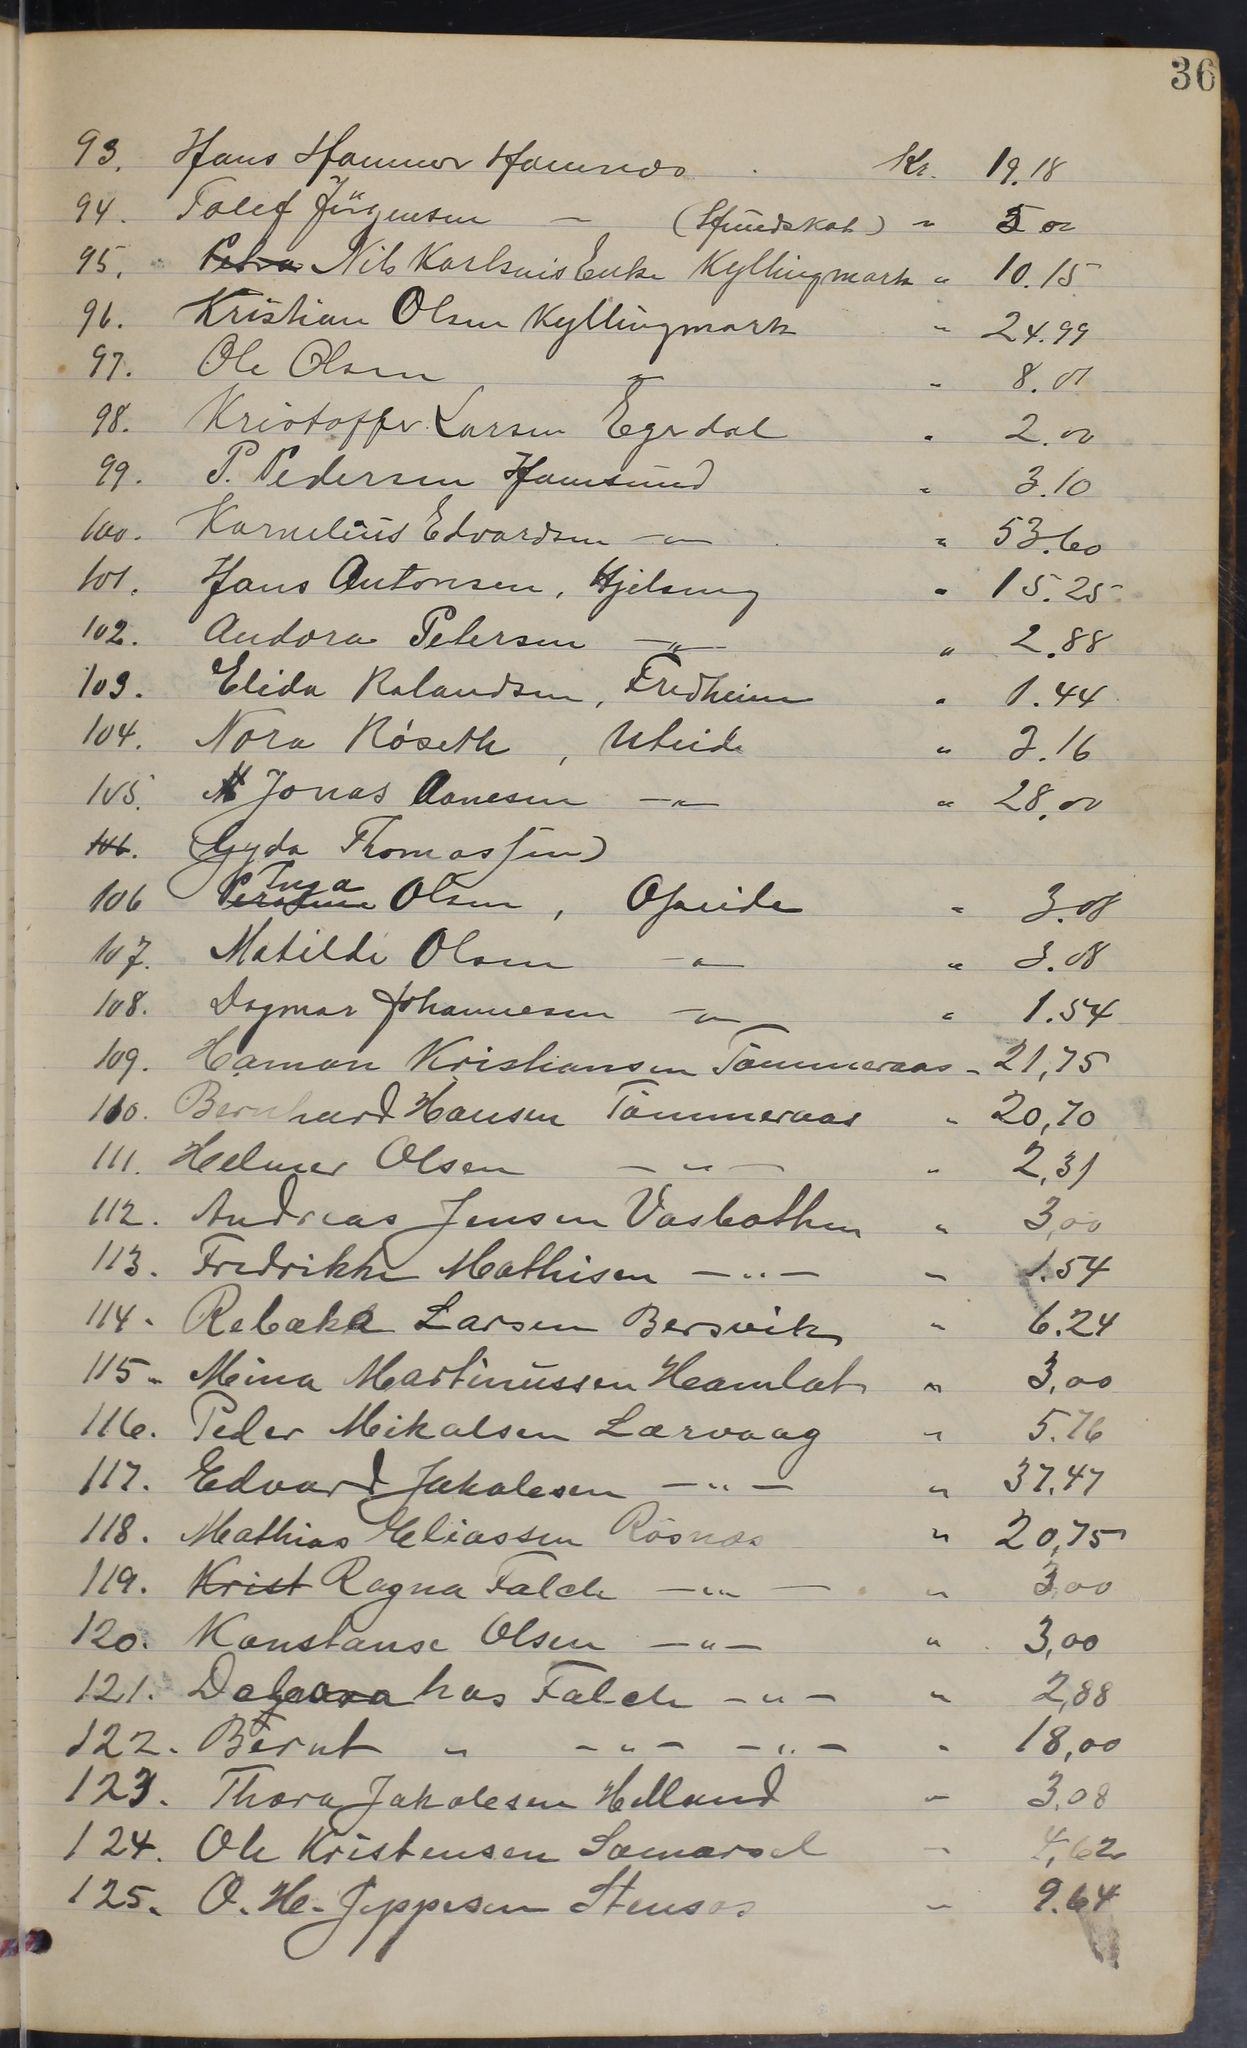 36
93. Hans Hammer Hamnes . Kr. 19.18
94. Tolef Jürgensen — (Hundskat) " 5 00
95. Petra Nils Karlsens Enke Kyllingmark " 10.15
96. Kristian Olsen Kyllingmark " 24.99
97. Ole Olsen " " 8.01
98. Kristoffer Larsen Egedal " 2.00
99. P. Pedersen Hamsund " 3.10
100. Kornelius Edvardsen —"— " 53.60
101. Hans Antonsen, Hjelseng " 15.25
102. Andora Petersen —"— " 2.88
103. Elida Rolandsen, Fredheim " 1.44
104. Nora Röseth , Uteide " 3.16
105. Jonas Aanesen —"— " 28.00
106. (Gyda Thomassen)
Inga
106 Olsen , Opeide " 3.08
107. Matilde Olsen —"— " 3.08
108. Dagmar Johannesen —"— " 1.54
109. Haman Kristiansen Tömmeraas " 21,75
110. Bernhard Hansen Tömmeraas " 20,70
111. Helmer Olsen —"— " 2,31
112. Andreas Jensen Vasbothen " 3,00
113. Fredrikke Mathisen —"— " 1.54
114. Rebekka Larsen Bersvik " 6.24
115. Mina Martinussen Hamlot " 3,00
116. Peder Mikalsen Lærvaag " 5.76
117. Edvard Jakobsen —"— " 37.47
118. Mathias Eliassen Rösnes " 20,75
119. Krist Ragna Falch —"— " 3,00
120. Konstanse Olsen —"— " 3,00
121. hos Falch —"— " 2,88
122. Bernt " —"— —"— " 18,00
123. Thora Jakobsen Helland " 3,08
124. Ole Kristensen Samarsel " 4,62
125. O. H. Jeppesen Stensos " 9.64